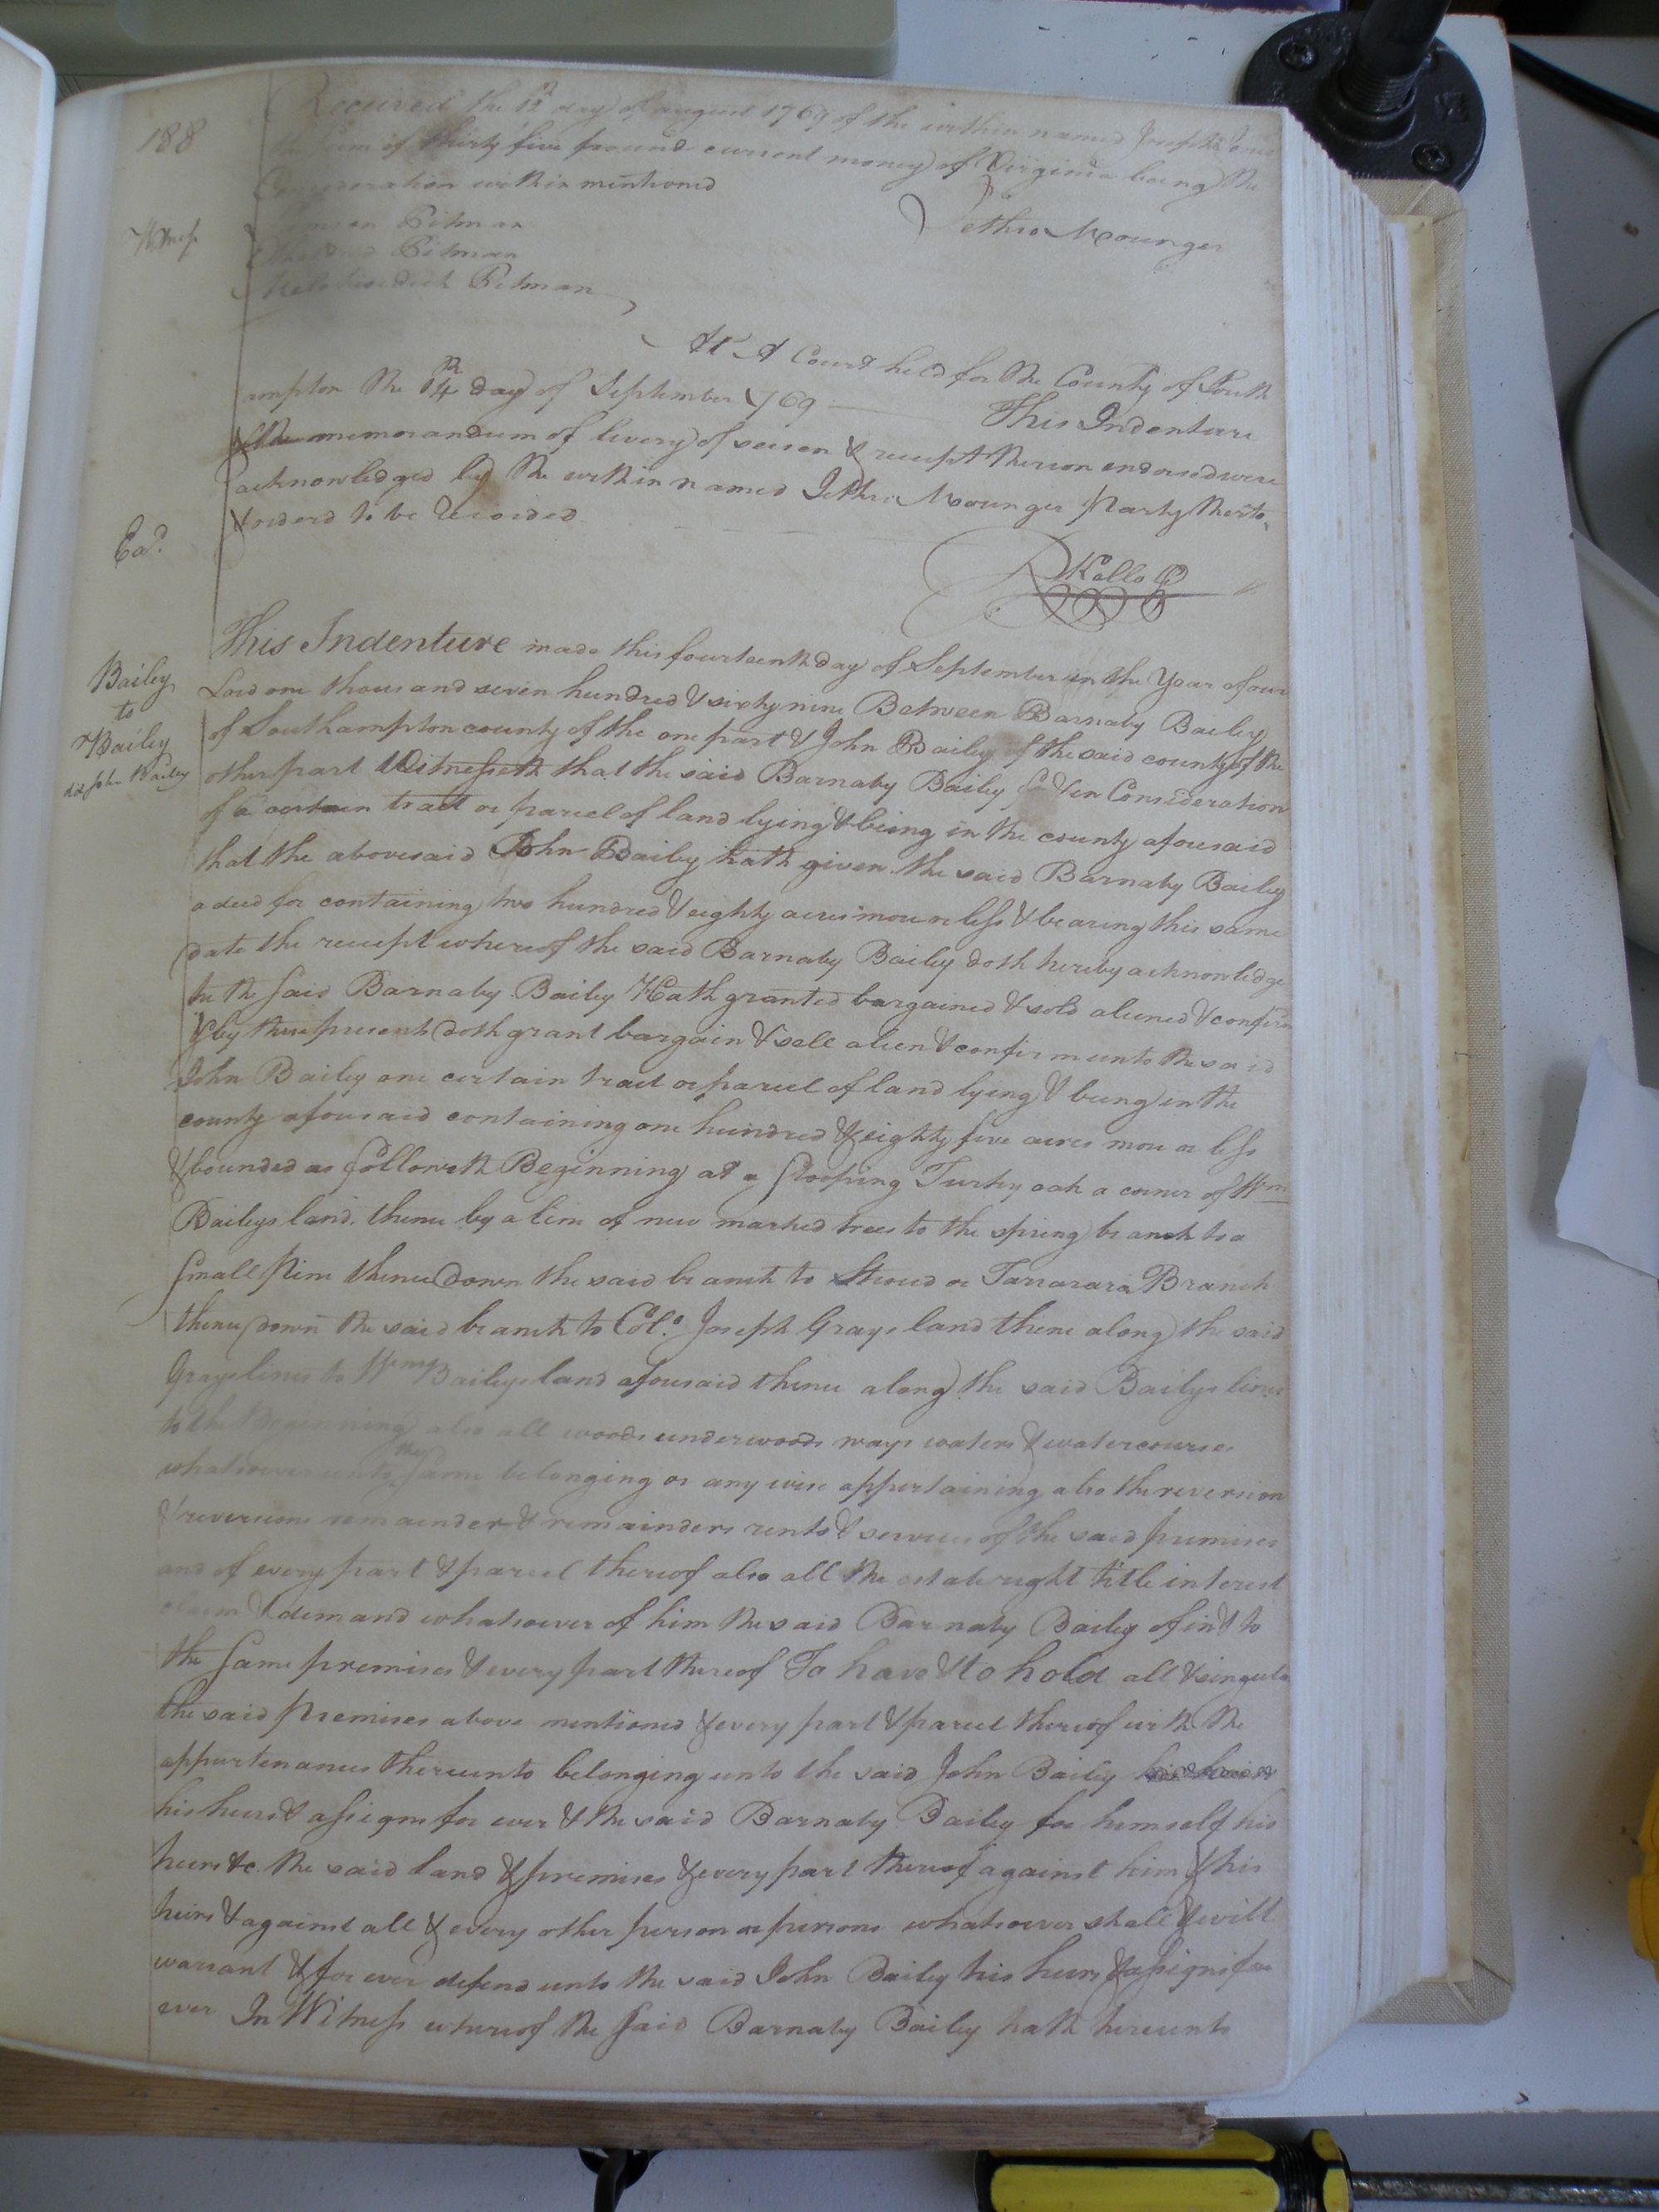 188
Received the 12th day of august 1769 of the within named Joseph
the sum of thirty five pound current money of Virginia being the
Consideration within mentioned
Jethro Mounger
Witness
Pitman
Pitman
Pitman
At A Court held for the County of South
ampton the 14th day of September 1769
This Indenture
& the memorandum of livery of seisen & receipt thereon endorsed were
acknowledged by the within named Jethro Mounger party thereto
& orderd to be Recorded
Exd.
R Kello C
Bailey
to
Bailey
dd John Bailey
This Indenture made this fourteenth day of September in the Year of our
Lord one thousand seven hundred & sixty nine Between Barnaby Bailey
of Southampton county of the one part & John Bailey of the said county of the
other part Witnesseth that the said Barnaby Bailey for & in Consideration
of a certain tract or parcel of land lying & being in the county aforesaid
that the abovesaid John Bailey hath given the said Barnaby Bailey
a deed for containing two hundred & eighty acres more or less & bearing this same
date the receipt whereof the said Barnaby Bailey doth hereby acknowledge
he the said Barnaby Bailey Hath granted bargained & sold aliened & confirmd
& by these presents doth grant bargain & sell alien & confirm unto the said
John Bailey one certain tract or parcel of land lying & being in the
county aforesaid containing one hundred & eighty five acres more or less
& bounded as followeth Beginning at a stooping Turky oak a corner of Wm
Baileys land. thence by a line of new marked trees to the spring branch to a
small Pine thence down the said branch to Stroud or Tarrarara Branch
thence down the said branch to Colo. Joseph Grays land thence along the said
Grays lines to Wm Baileys land aforesaid thence along the said Bailys lines
to the Beginning also all woods underwoods ways waters & watercourses
whatsoever unto the same belonging or any wise appertaining also the reversion
& reversions remainder & remainders rents & services of the said premises
and of every part & parcel thereof also all the estate right title interest
claim & demand whatsoever of him the said Barnaby Bailey of in & to
the same premises & every part thereof To have & to hold all & singular
the said premises above mentioned & every part & parcel thereof with the
appurtenances thereunto belonging unto the said John Bailey
his heirs & assigns for ever & the said Barnaby Bailey for himself his
heirs &c. the said land & premises & every part thereof against him & his
heirs & against all & every other person or persons whatsoever shall & will
warrant & for ever defend unto the said John Bailey his heirs & assigns for
ever In Witness whereof the said Barnaby Bailey hath hereunto